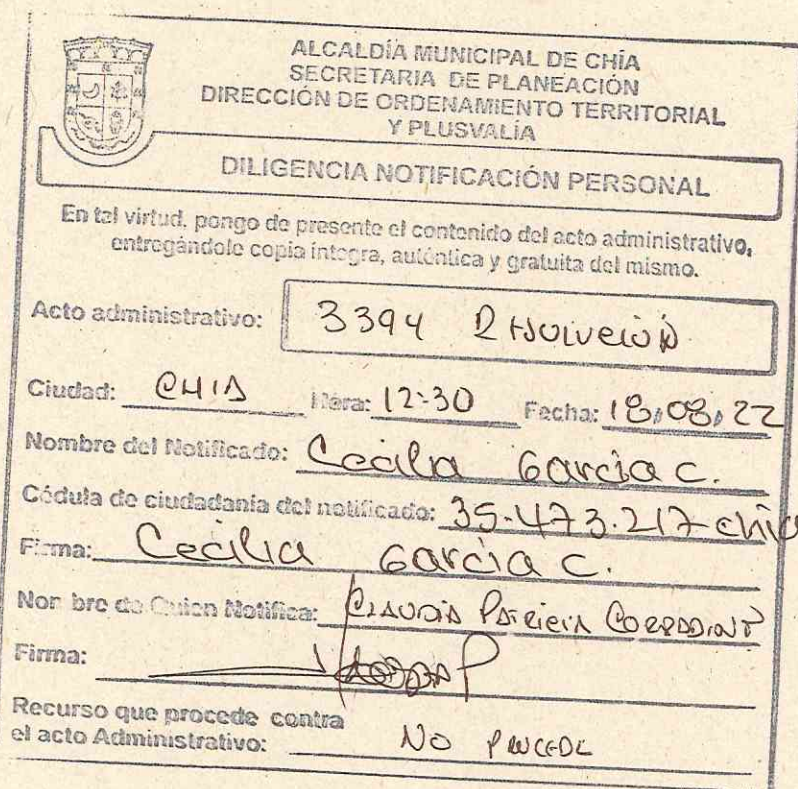 ALCALDÍA MUNICIPAL DE CHÍA
SECRETARIA DE PLANEACIÓN
DIRECCIÓN DE ORDENAMIENTO TERRITORIAL
Y PLUSVALÍA
DILIGENCIA NOTIFICACIÓN PERSONAL
En tal virtud, pongo de presente el contenido del acto administrativo,
entregándole copia íntegra, auténtica y gratuita del mismo.
Acto administrativo: 3394
Ciudad: CHIA Hora: 12:30 Fecha: 18,08,22
Nombre del Notificado: Cecilia Garcia C.
Cédula de ciudadanía del notificado: 35.473.217 chia
Firma: Cecilia Garcia C.
Nombre de Quien Notifica: CLAUDIA
Firma:
Recurso que procede contra
el acto Administrativo: NO PROCEDE